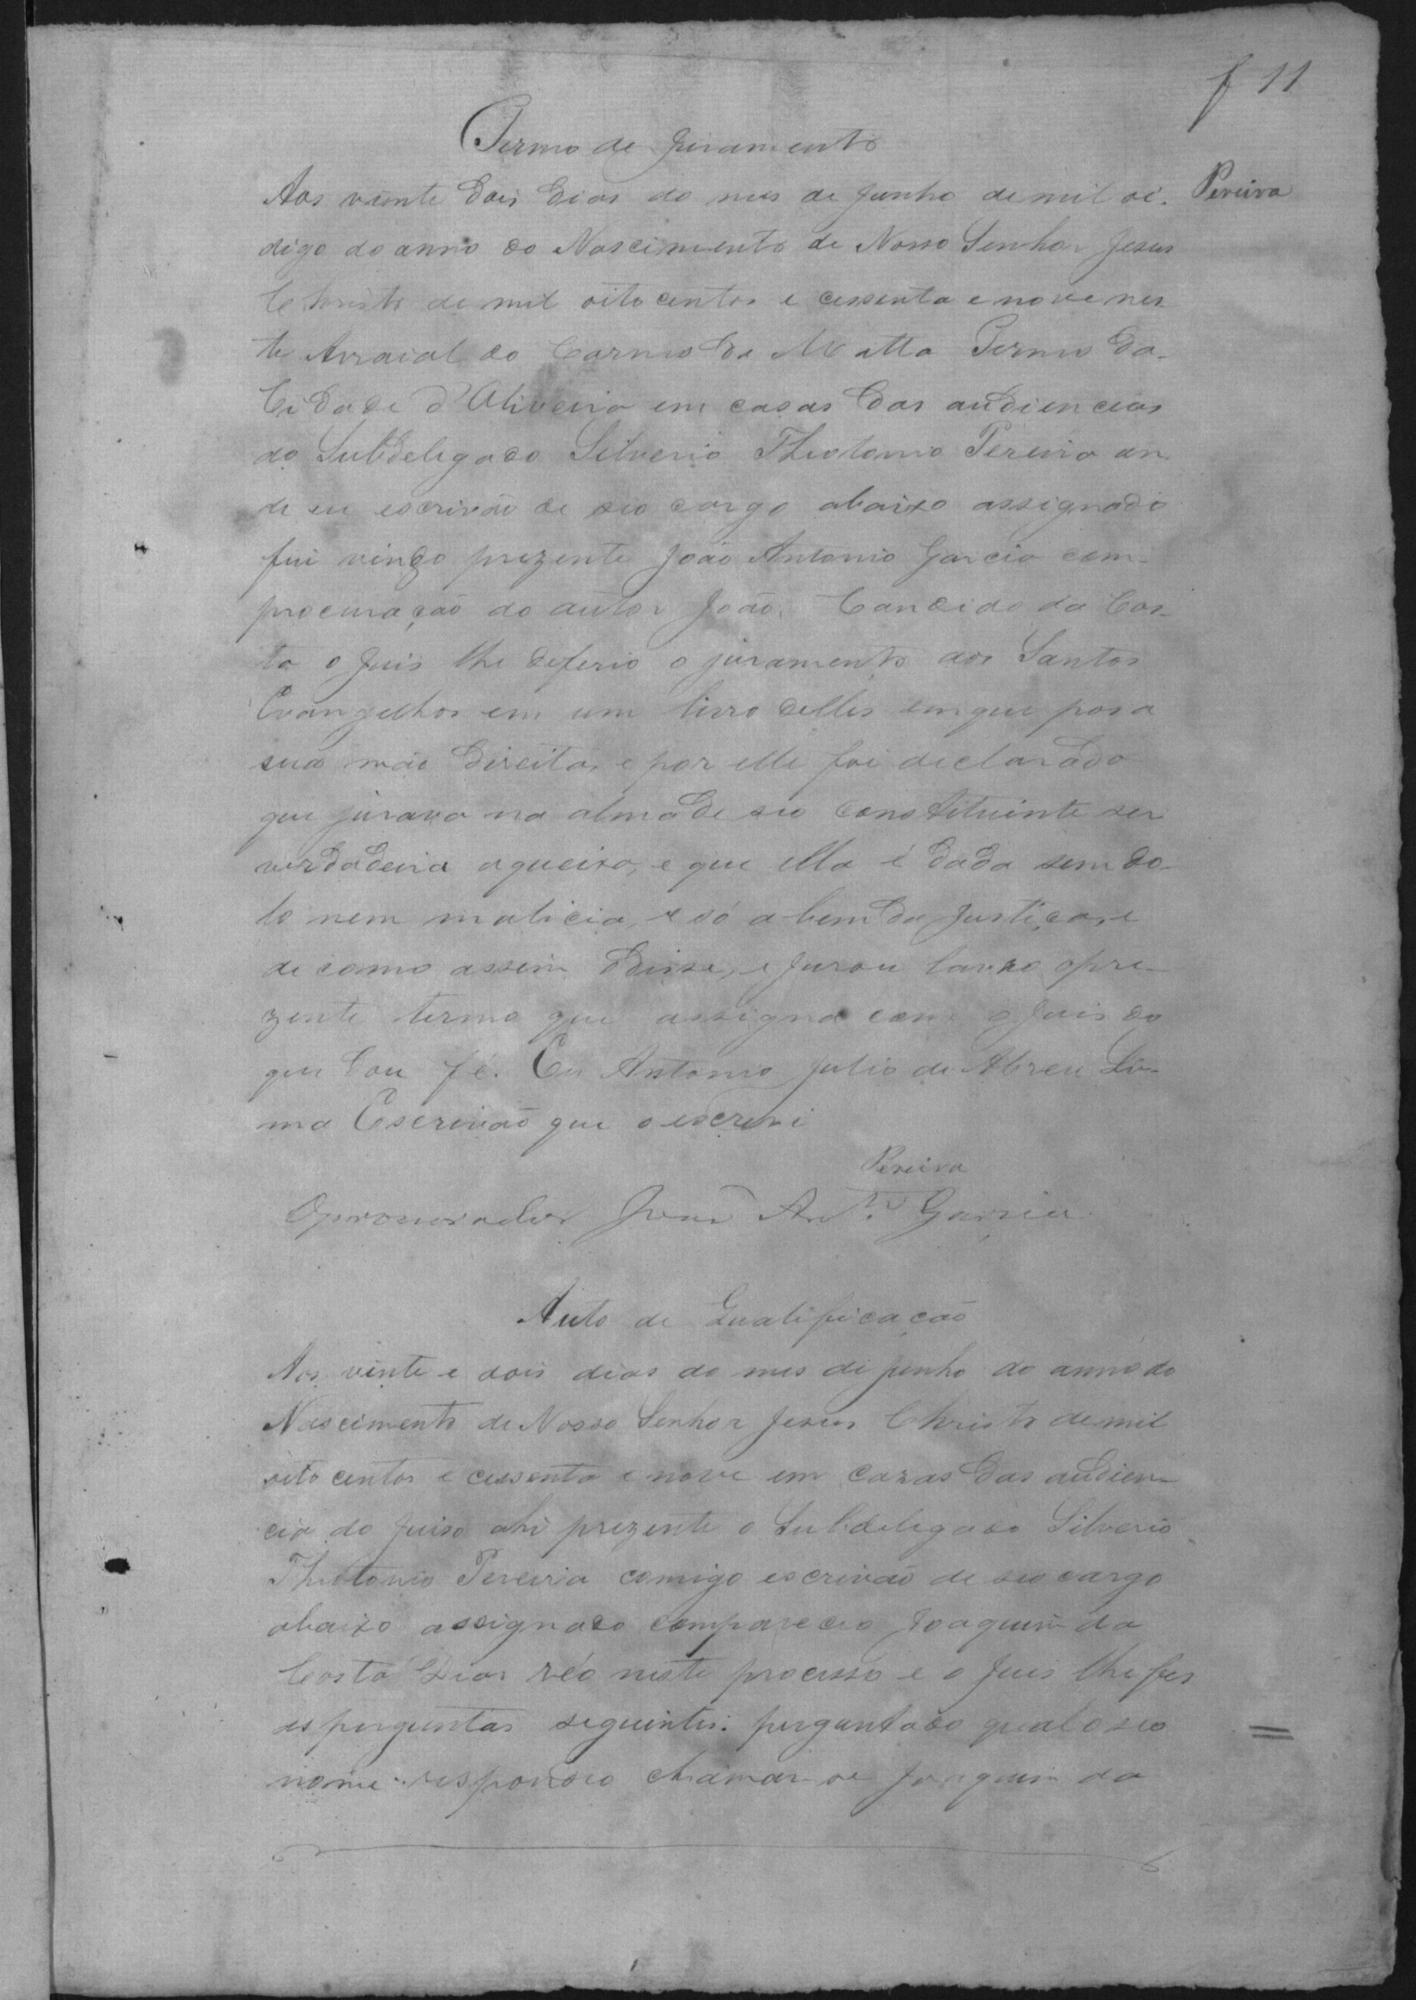 f 11
Termo de Juramento
Aos vinte dois dias do mes de Junho de mil oi. Pereira
digo do anno do Nascimento de Nosso Senhor Jesus
Christo de mil oitocentos e cessenta e nove nes
te Arraial do Carmo da Matta Termo da
Cidade d'Oliveira em casas das audiencias
do Subdelegado Silverio Theotonio Pereira on
de eu escrivão de seo cargo abaixo assignado
fui vindo prezente João Antonio Garcia com
procuração do autor João Candido da Cos-
ta o Juis lhe deferio o juramento aos Santos
Evangelhos em um livro delles em que pos a
sua mão direita, e por elle foi declarado
que jurava na alma de seo constituinte ser
verdadeira a queixa, e que ella é dada sem do-
lo nem malicia, e só a bem da Justiça, e
de como assim disse, e jurou lavro o pre-
zente termo que assigna com o Juis do
que dou fé. Eu Antonio Julio de Abreu Li-
ma Escrivão que o escrevi
Pereira
O procurador João Antº. Garcia
Auto de Qualificação
Aos vinte e dois dias do mes de Junho do anno do
Nascimento de Nosso Senhor Jesus Christo de mil
oito centos e cessenta e nove em cazas das audien-
cia do Juiso ahi prezente o Subdelegado Silverio
Theotonio Pereira comigo escrivão de seo cargo
abaixo assignado compareceo Joaquim da
Costa Dias réo neste processo e o Juis lhe fes
as perguntas seguintes: perguntado qual o seo
nome. respondeo chamar-se Joaquim da